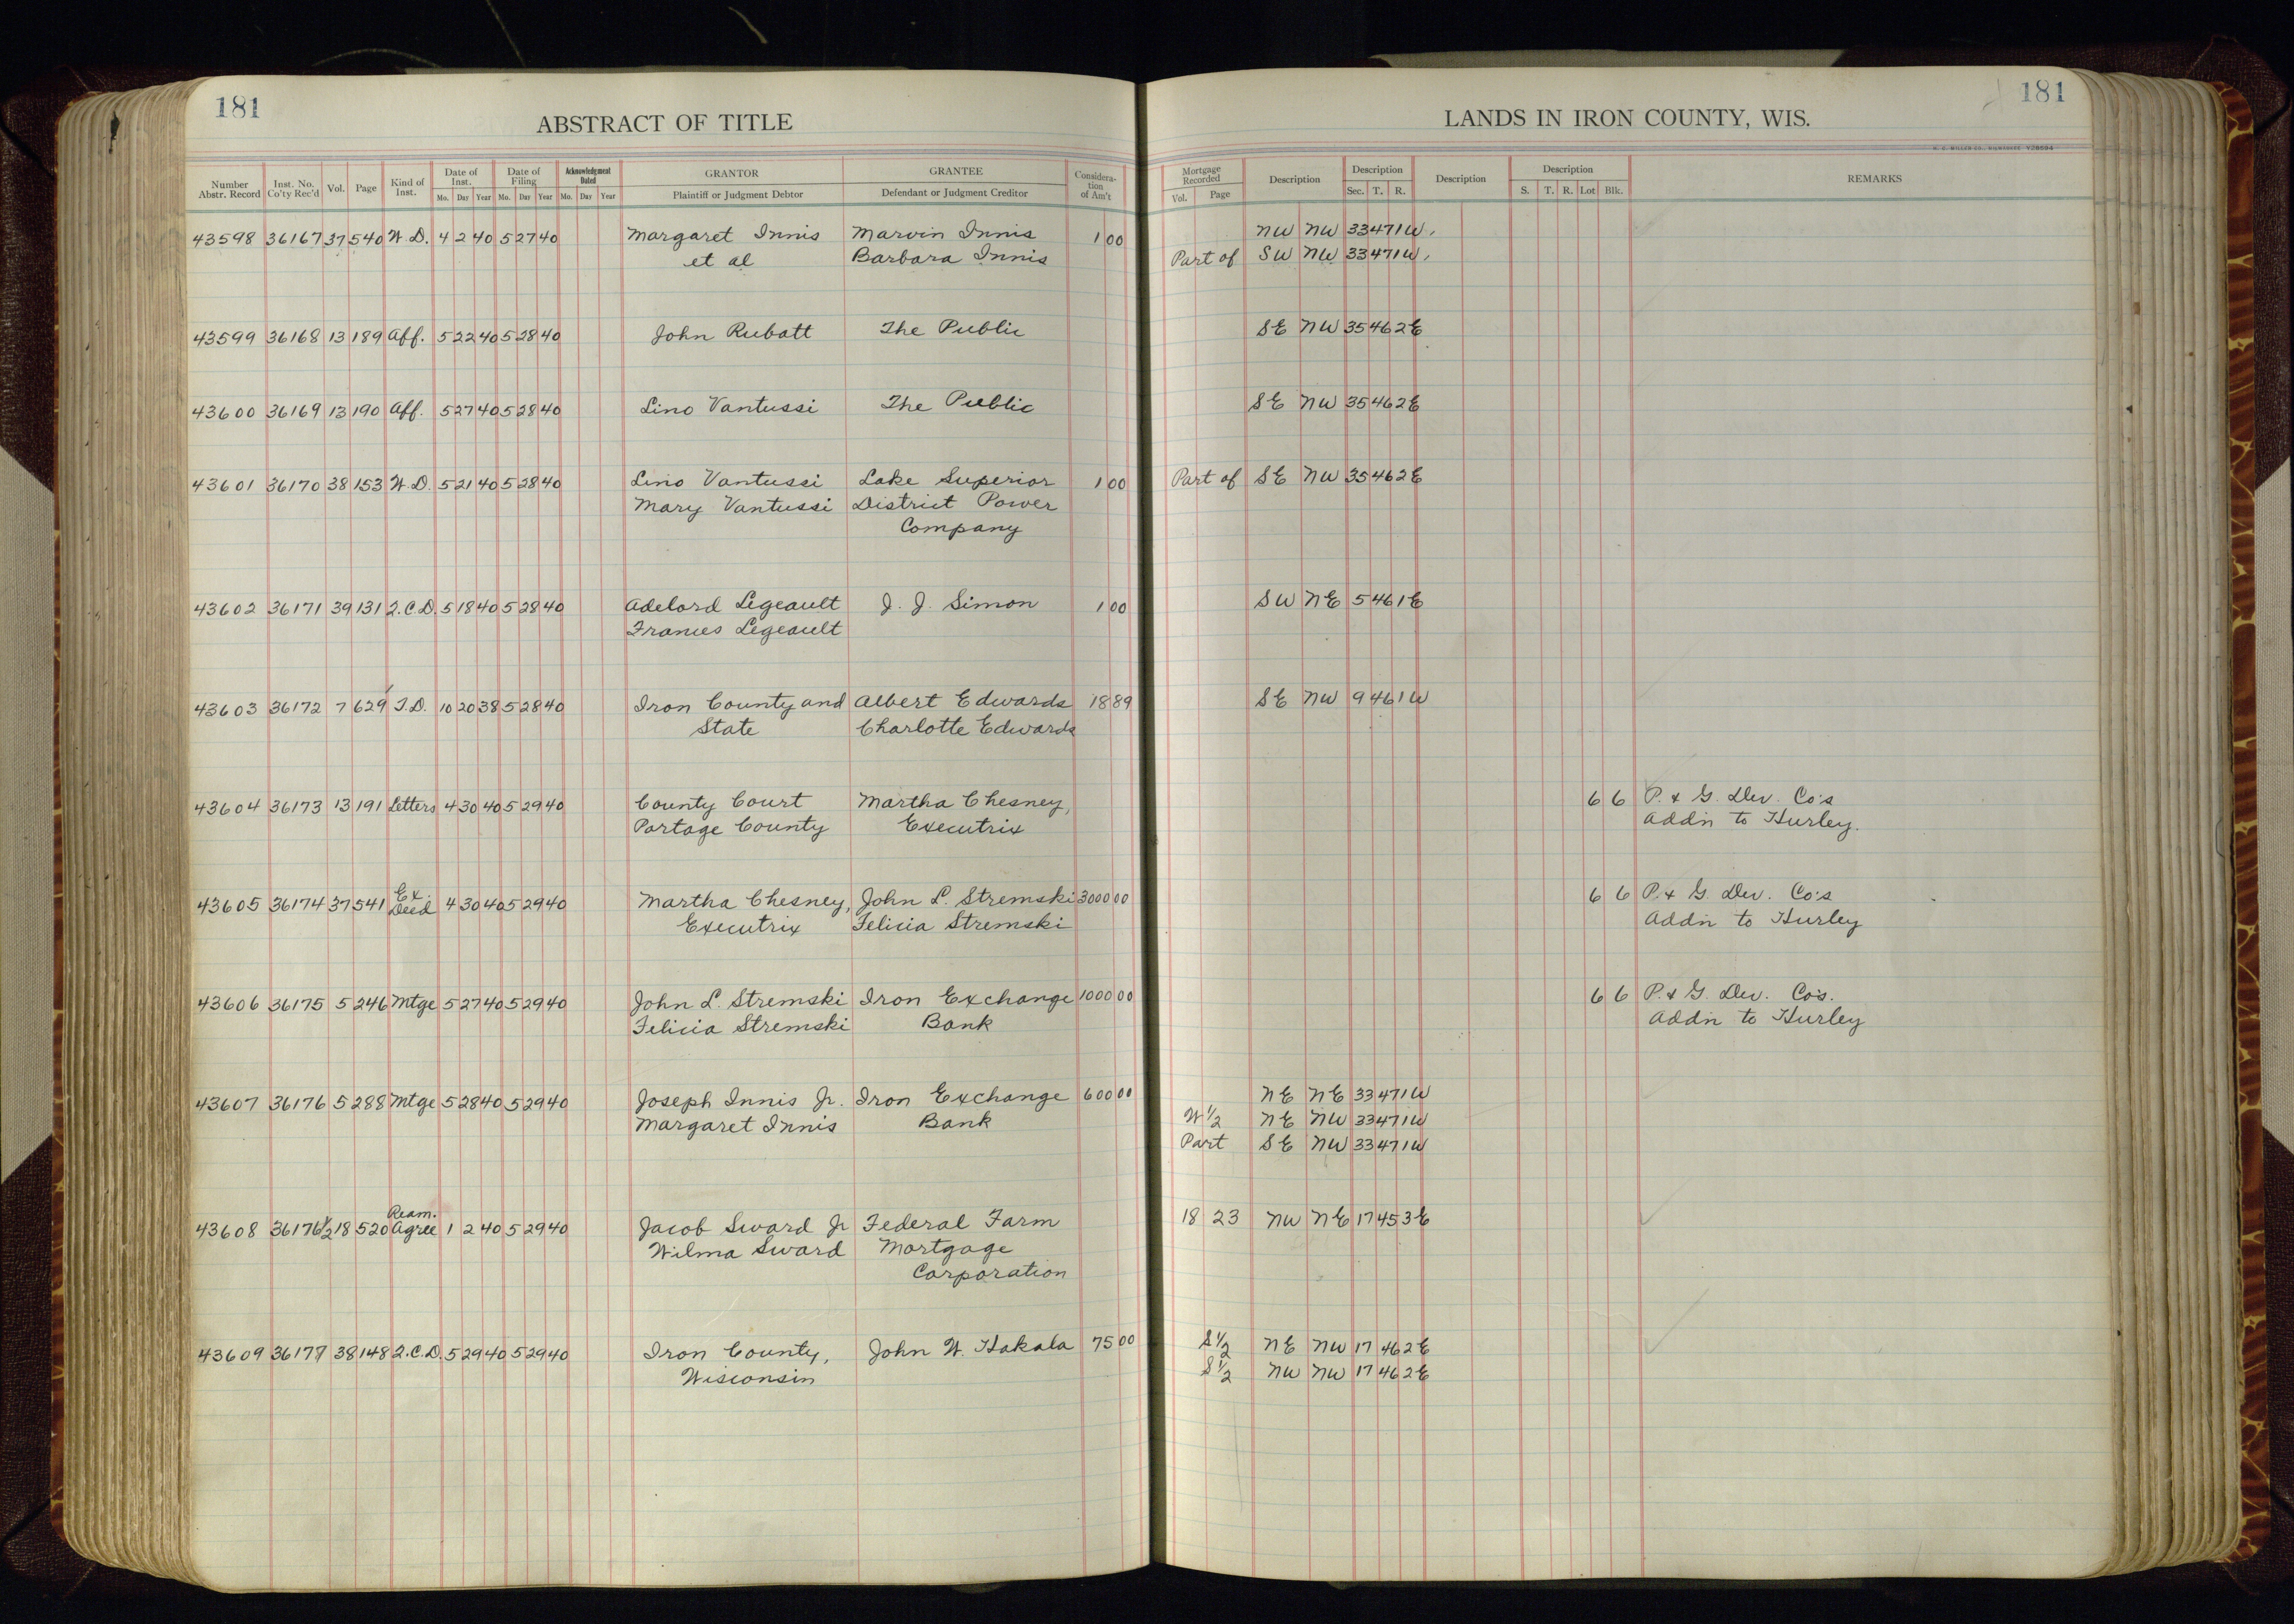 181
ABSTRACT OF TITLE
Number Abstr. Record | Inst. No. Co'ty Rec'd | Vol. | Page | Kind of Inst. | Date of Inst. Mo. Day Year | Date of Filing Mo. Day Year | Acknowledgment Dated Mo. Day Year | GRANTOR Plaintiff or Judgment Debtor | GRANTEE Defendant or Judgment Creditor | Consideration of Am't
43598 36167 37 540 W.D. 4 2 40 5 27 40 Margaret Innis Marvin Innis 1 00
et al Barbara Innis
43599 36168 13 189 Aff. 5 22 40 5 28 40 John Rubatt The Public
43600 36169 13 190 Aff. 5 27 40 5 28 40 Lino Vantussi The Public
43601 36170 38 153 W.D. 5 21 40 5 28 40 Lino Vantussi Lake Superior 1 00
Mary Vantussi District Power
Company
43602 36171 39 131 Q.C.D. 5 18 40 5 28 40 Adelord Legeault J. J. Simon 1 00
Frances Legeault
43603 36172 7 629 T.D. 10 20 38 5 28 40 Iron County and Albert Edwards 18 89
State Charlotte Edwards
43604 36173 13 191 Letters 4 30 40 5 29 40 County Court Martha Chesney,
Portage County Executrix
43605 36174 37 541 Ex. Deed 4 30 40 5 29 40 Martha Chesney, John L. Stremski 3000 00
Executrix Felicia Stremski
43606 36175 5 246 Mtge 5 27 40 5 29 40 John L. Stremski Iron Exchange 1000 00
Felicia Stremski Bank
43607 36176 5 288 Mtge 5 28 40 5 29 40 Joseph Innis Jr. Iron Exchange 600 00
Margaret Innis Bank
43608 36176½ 18 520 Ream. Agree 1 2 40 5 29 40 Jacob Sward Jr Federal Farm
Wilma Sward Mortgage
Corporation
43609 36177 38 148 Q.C.D. 5 29 40 5 29 40 Iron County, John W. Hakala 75 00
Wisconsin
181
LANDS IN IRON COUNTY, WIS.
H. C. MILLER CO., MILWAUKEE
Mortgage Recorded Vol. Page | Description | Description Sec. T. R. | Description | Description S. T. R. Lot Blk. | REMARKS
NW NW 33 47 1W.
Part of SW NW 33 47 1W.
SE NW 35 46 2E
SE NW 35 46 2E
Part of SE NW 35 46 2E
SW NE 5 46 1E
SE NW 9 46 1W
6 6 P. & G. Dev. Co's
Addn to Hurley.
6 6 P. & G. Dev. Co's
Addn to Hurley
6 6 P. & G. Dev. Co's.
Addn to Hurley
NE NE 33 47 1W
W½ NE NW 33 47 1W
Part SE NW 33 47 1W
18 23 NW NE 17 45 3E
S½ NE NW 17 46 2E
S½ NW NW 17 46 2E